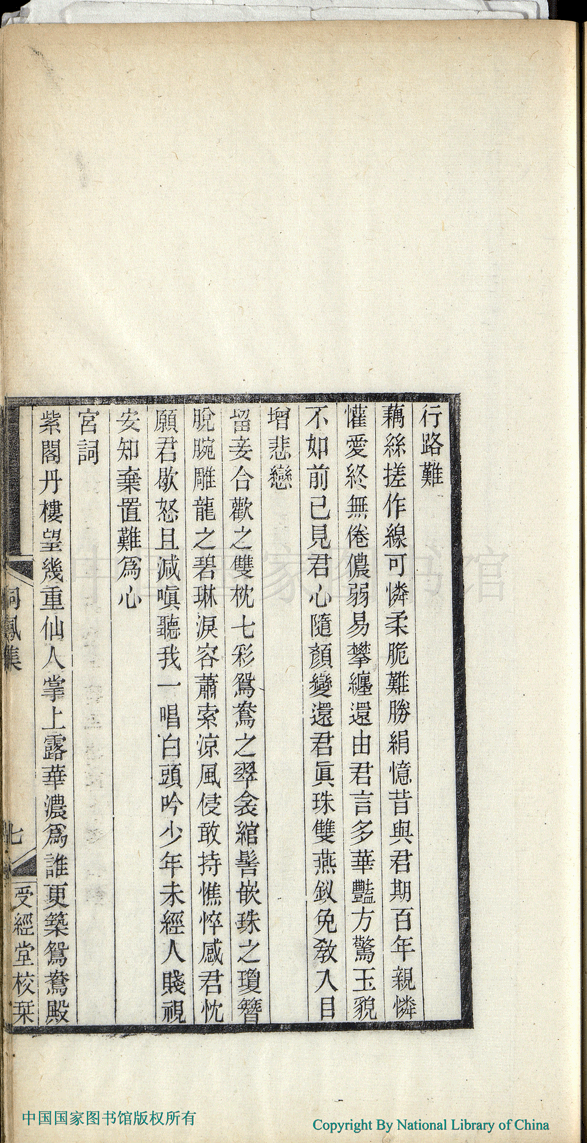 行路難
藕絲搓作線可憐柔脆難勝絹憶昔與君期百年親憐
懽愛終無倦儂弱易攀纏還由君言多華豔方驚玉貌
不如前已見君心隨顏變還君眞珠雙燕釵免敎入目
增悲戀
留妾合歡之雙枕七彩鴛鴦之翠衾綰髻嵌珠之瓊簪
脫腕雕龍之碧琳淚容蕭索涼風侵敢持憔悴感君忱
願君歇怒且減嗔聽我一唱白頭吟少年未經人賤視
安知棄置難爲心
宮詞
紫閣丹樓望幾重仙人掌上露華濃爲誰更築鴛鴦殿
桐鳳集
七
受經堂校栞
中国国家图书馆
中国国家图书馆版权所有
Copyright By National Library of China